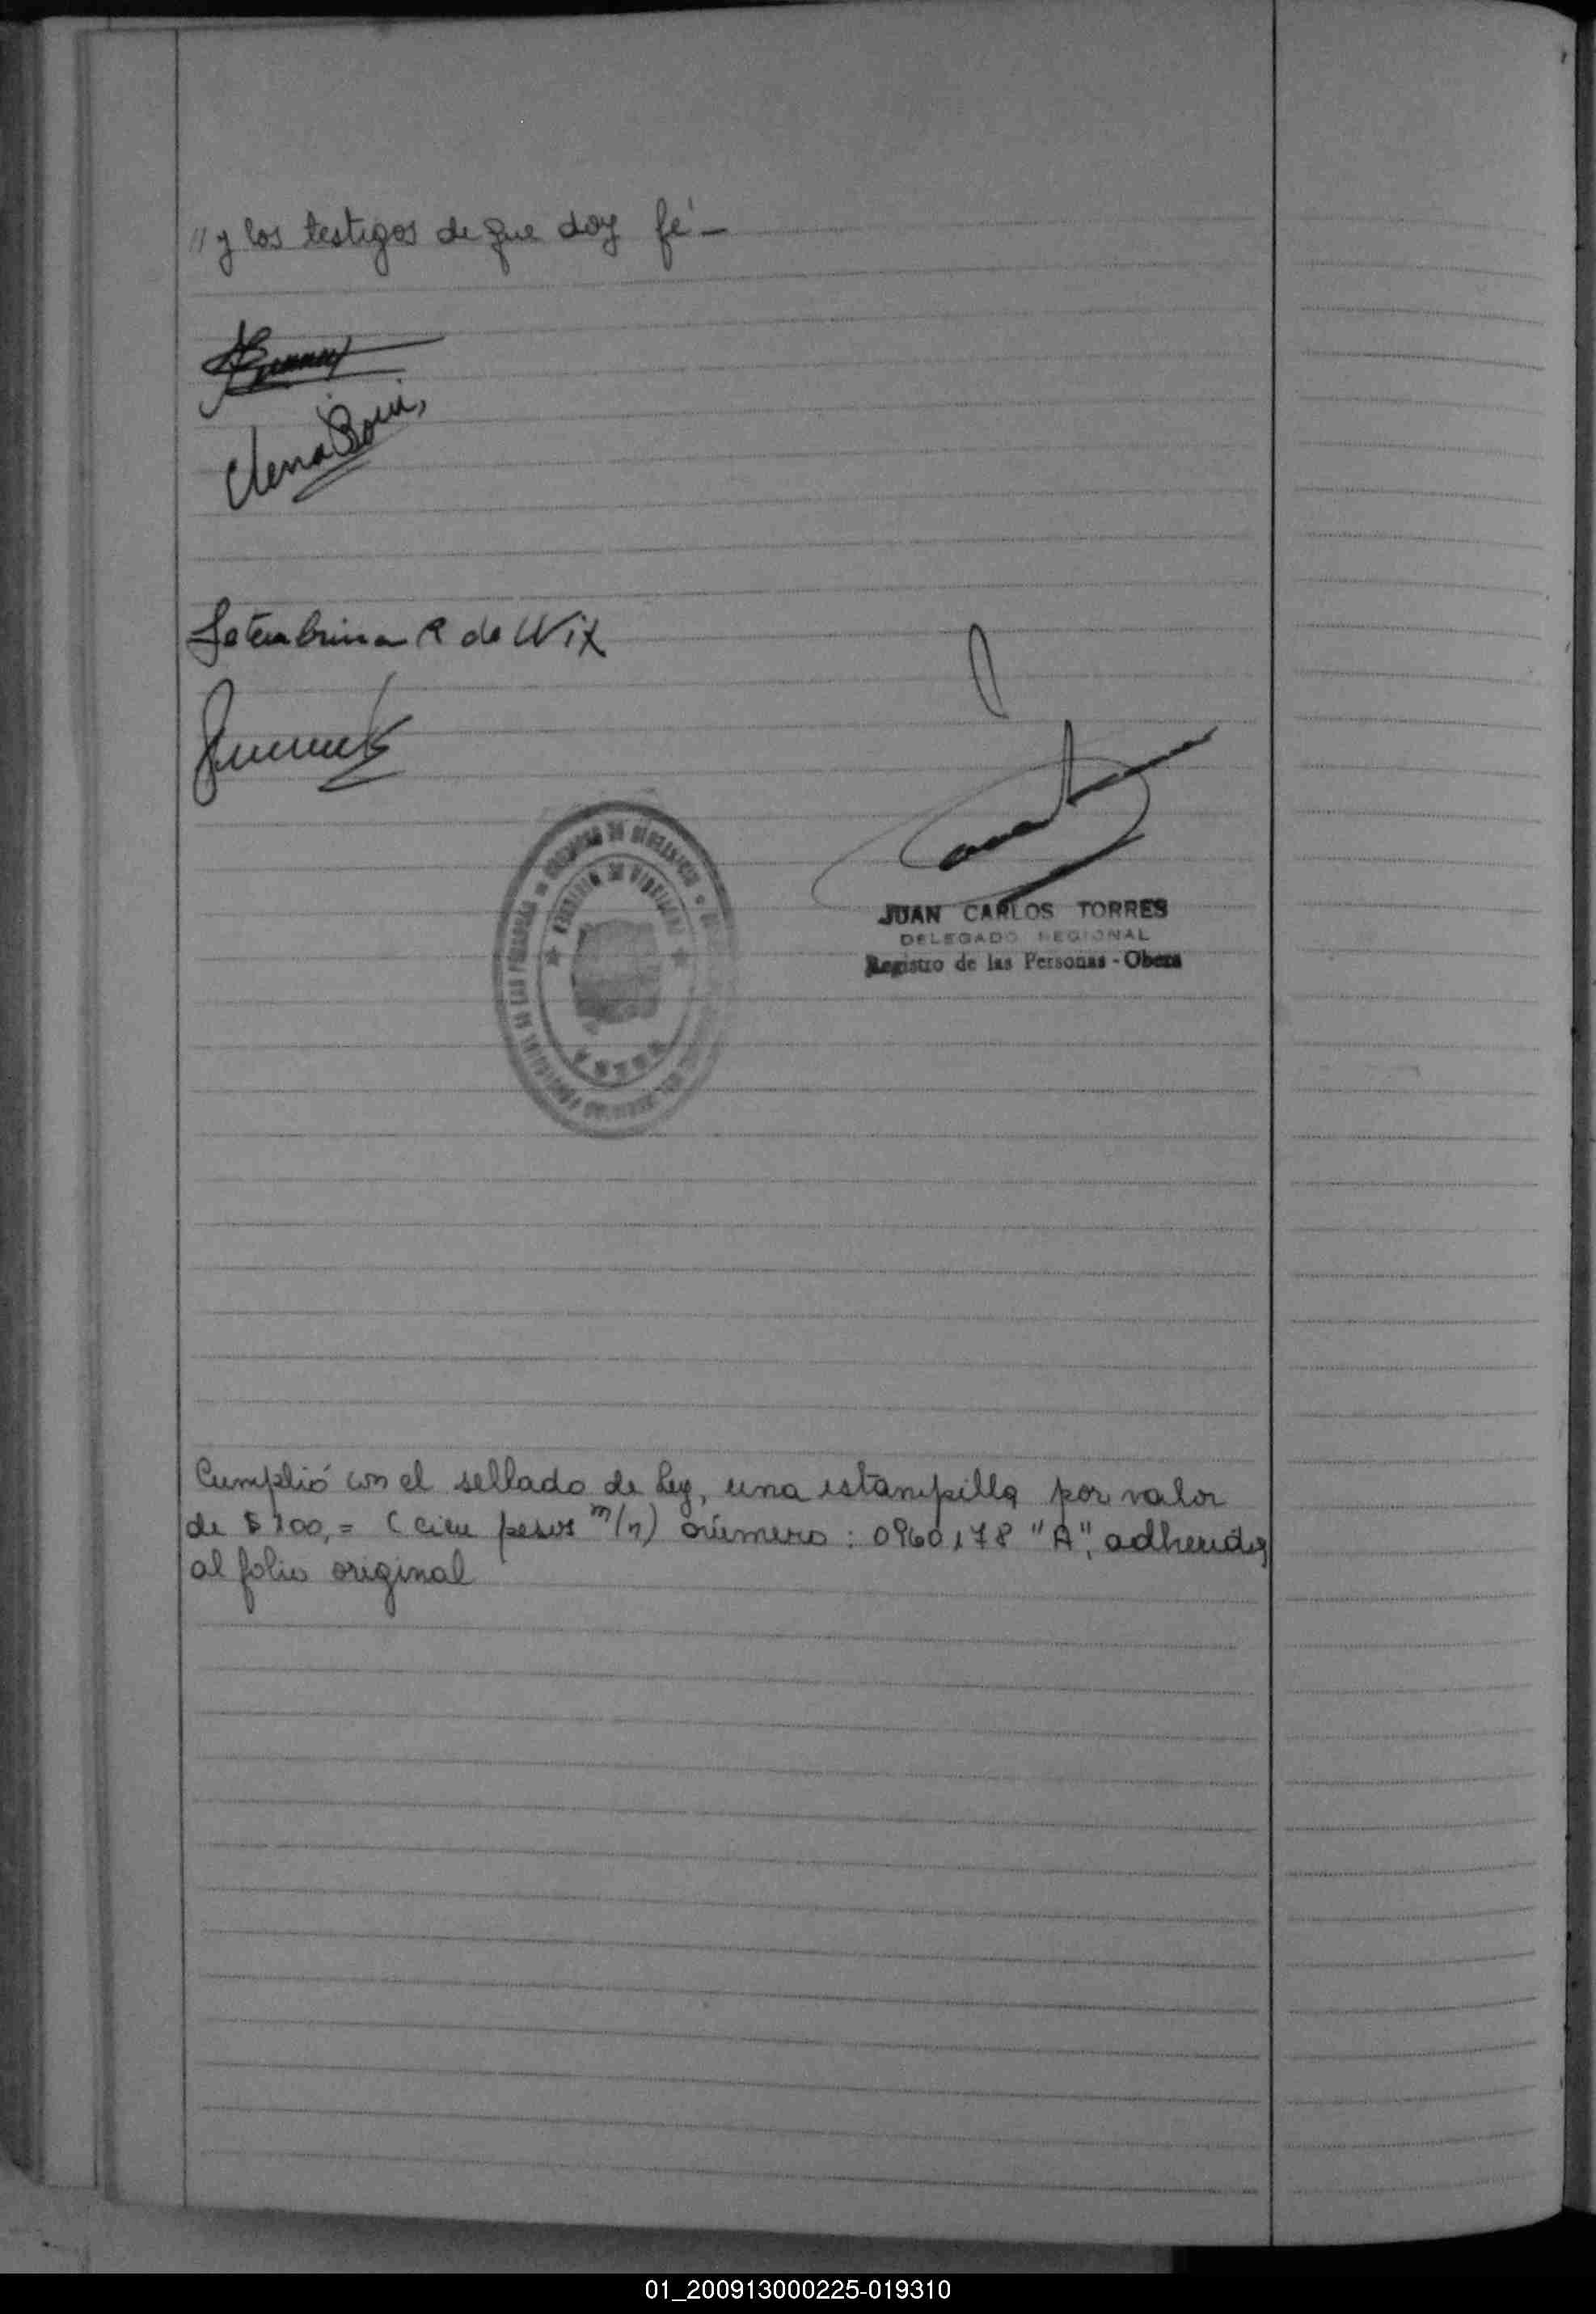 " y los testigos de que doy fé -
Elena
Setembrina R de Wix
JUAN CARLOS TORRES
DELEGADO REGIONAL
Registro de las Personas - Obera
Cumplió con el sellado de Ley, una estampilla por valor
de $ 100,= (cien pesos m/n) número: 0960178 "A", adherida
al folio original
01_200913000225-019310